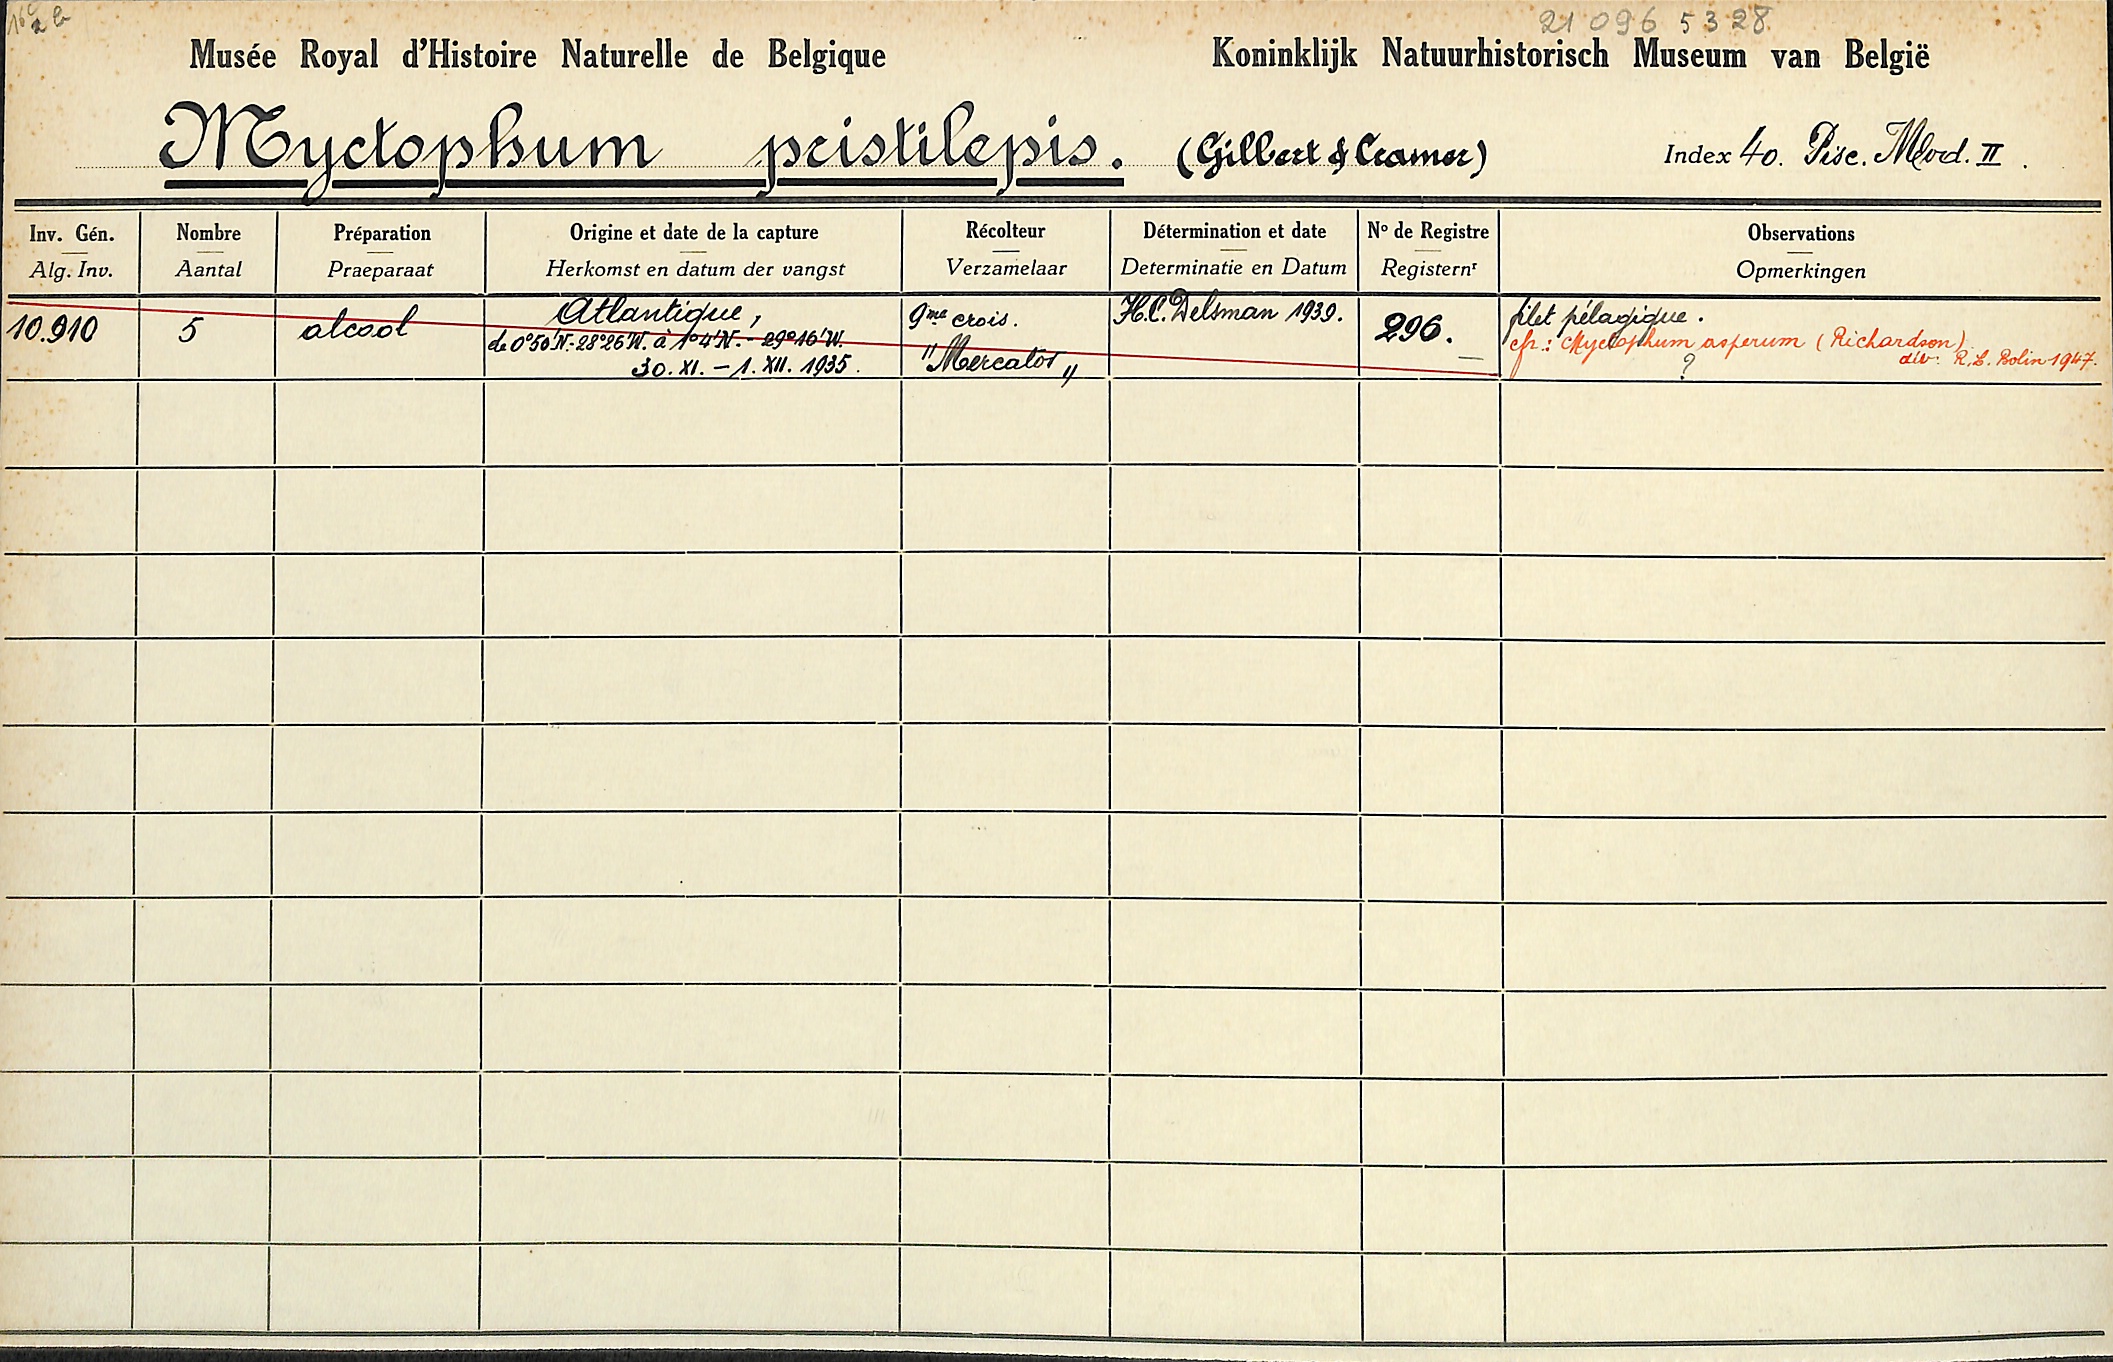 21 096 5328
Musée Royal d'Histoire Naturelle de Belgique
Koninklijk Natuurhistorisch Museum van België
Myctophum pristilepis. (Gilbert & Cramer)
Index 40. Pisc. Mord. II.
Inv. Gén.
Alg. Inv.
Nombre
Aantal
Préparation
Praeparaat
Origine et date de la capture
Herkomst en datum der vangst
Récolteur
Verzamelaar
Détermination et date
Determinatie en Datum
No de Registre
Registernr
Observations
Opmerkingen
10.910
5
alcool
Atlantique,
de 0°50'N.-28°26'W. à 1°4'N.-29°16'W.
30. XI. – 1. XII. 1935.
9me crois.
"Mercator"
H.C. Delsman 1939.
296.
filet pélagique.
cfr.: Myctophum asperum (Richardson)
R.L. Bolin 1947.
?